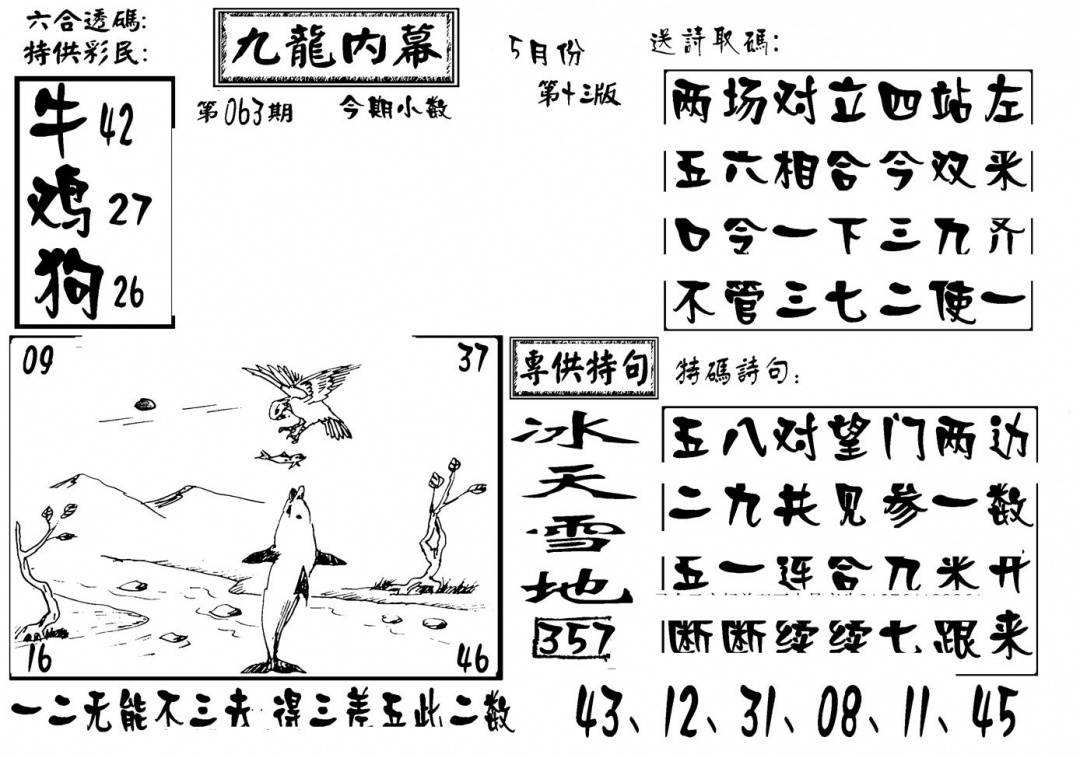 六合透碼:
特供彩民:
牛 42
鸡 27
狗 26
九龍内幕
第063期 今期小数
5月份
第十三版
送詩取碼:
两场对立四站左
五六相合今双来
口令一下三九齐
不管三七二使一
09 37
16 46
專供特句
冰天雪地
357
特碼詩句:
五八对望门两边
二九共见参一数
五一连合九米开
断断续续七跟来
一二无能不三夫 得三差五此二数
43、12、31、08、11、45